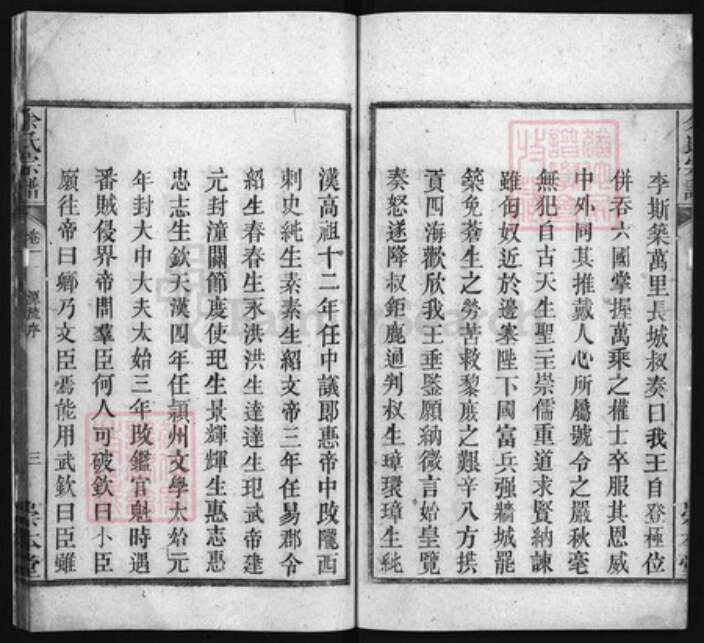 李斯築萬里長城叔奏曰我王自登極位
併吞六國掌握萬乘之權士卒服其恩威
中外同其推戴人心所屬號令之嚴秋毫
無犯自古天生聖主崇儒重道求賢納諫
雖匈奴近於邊塞陛下國富兵强牆城罷
築免蒼生之勞苦救黎庶之艱辛八方拱
貢四海歡欣我王垂鑒願納微言始皇覽
奏怒遂降叔鉅鹿通判叔生璋環璋生純
漢高祖十二年任中議郎惠帝中改隴西
刺史純生素素生紹文帝三年任易郡令
紹生春春生永洪洪生達達生玘武帝建
元封潼關節度使玘生景輝輝生惠志惠
忠志生欽天漢四年任潁州文學太始元
年封大中大夫太始三年改鑑官魁時遇
番賊侵界帝問羣臣何人可破欽曰小臣
願往帝曰卿乃文臣焉能用武欽曰臣雖
余氏宗譜
卷一
三
崇本堂